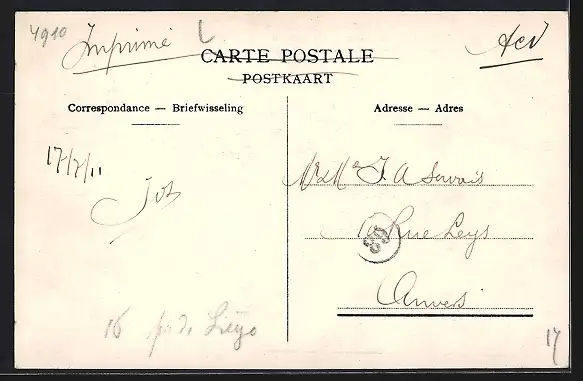 4910
Imprimé
L
AcV
CARTE POSTALE
POSTKAART
Correspondance — Briefwisseling
Adresse — Adres
17/7/11
M & Me J. A Servais
Rue Leys
39
Anvers
16 Liége
17